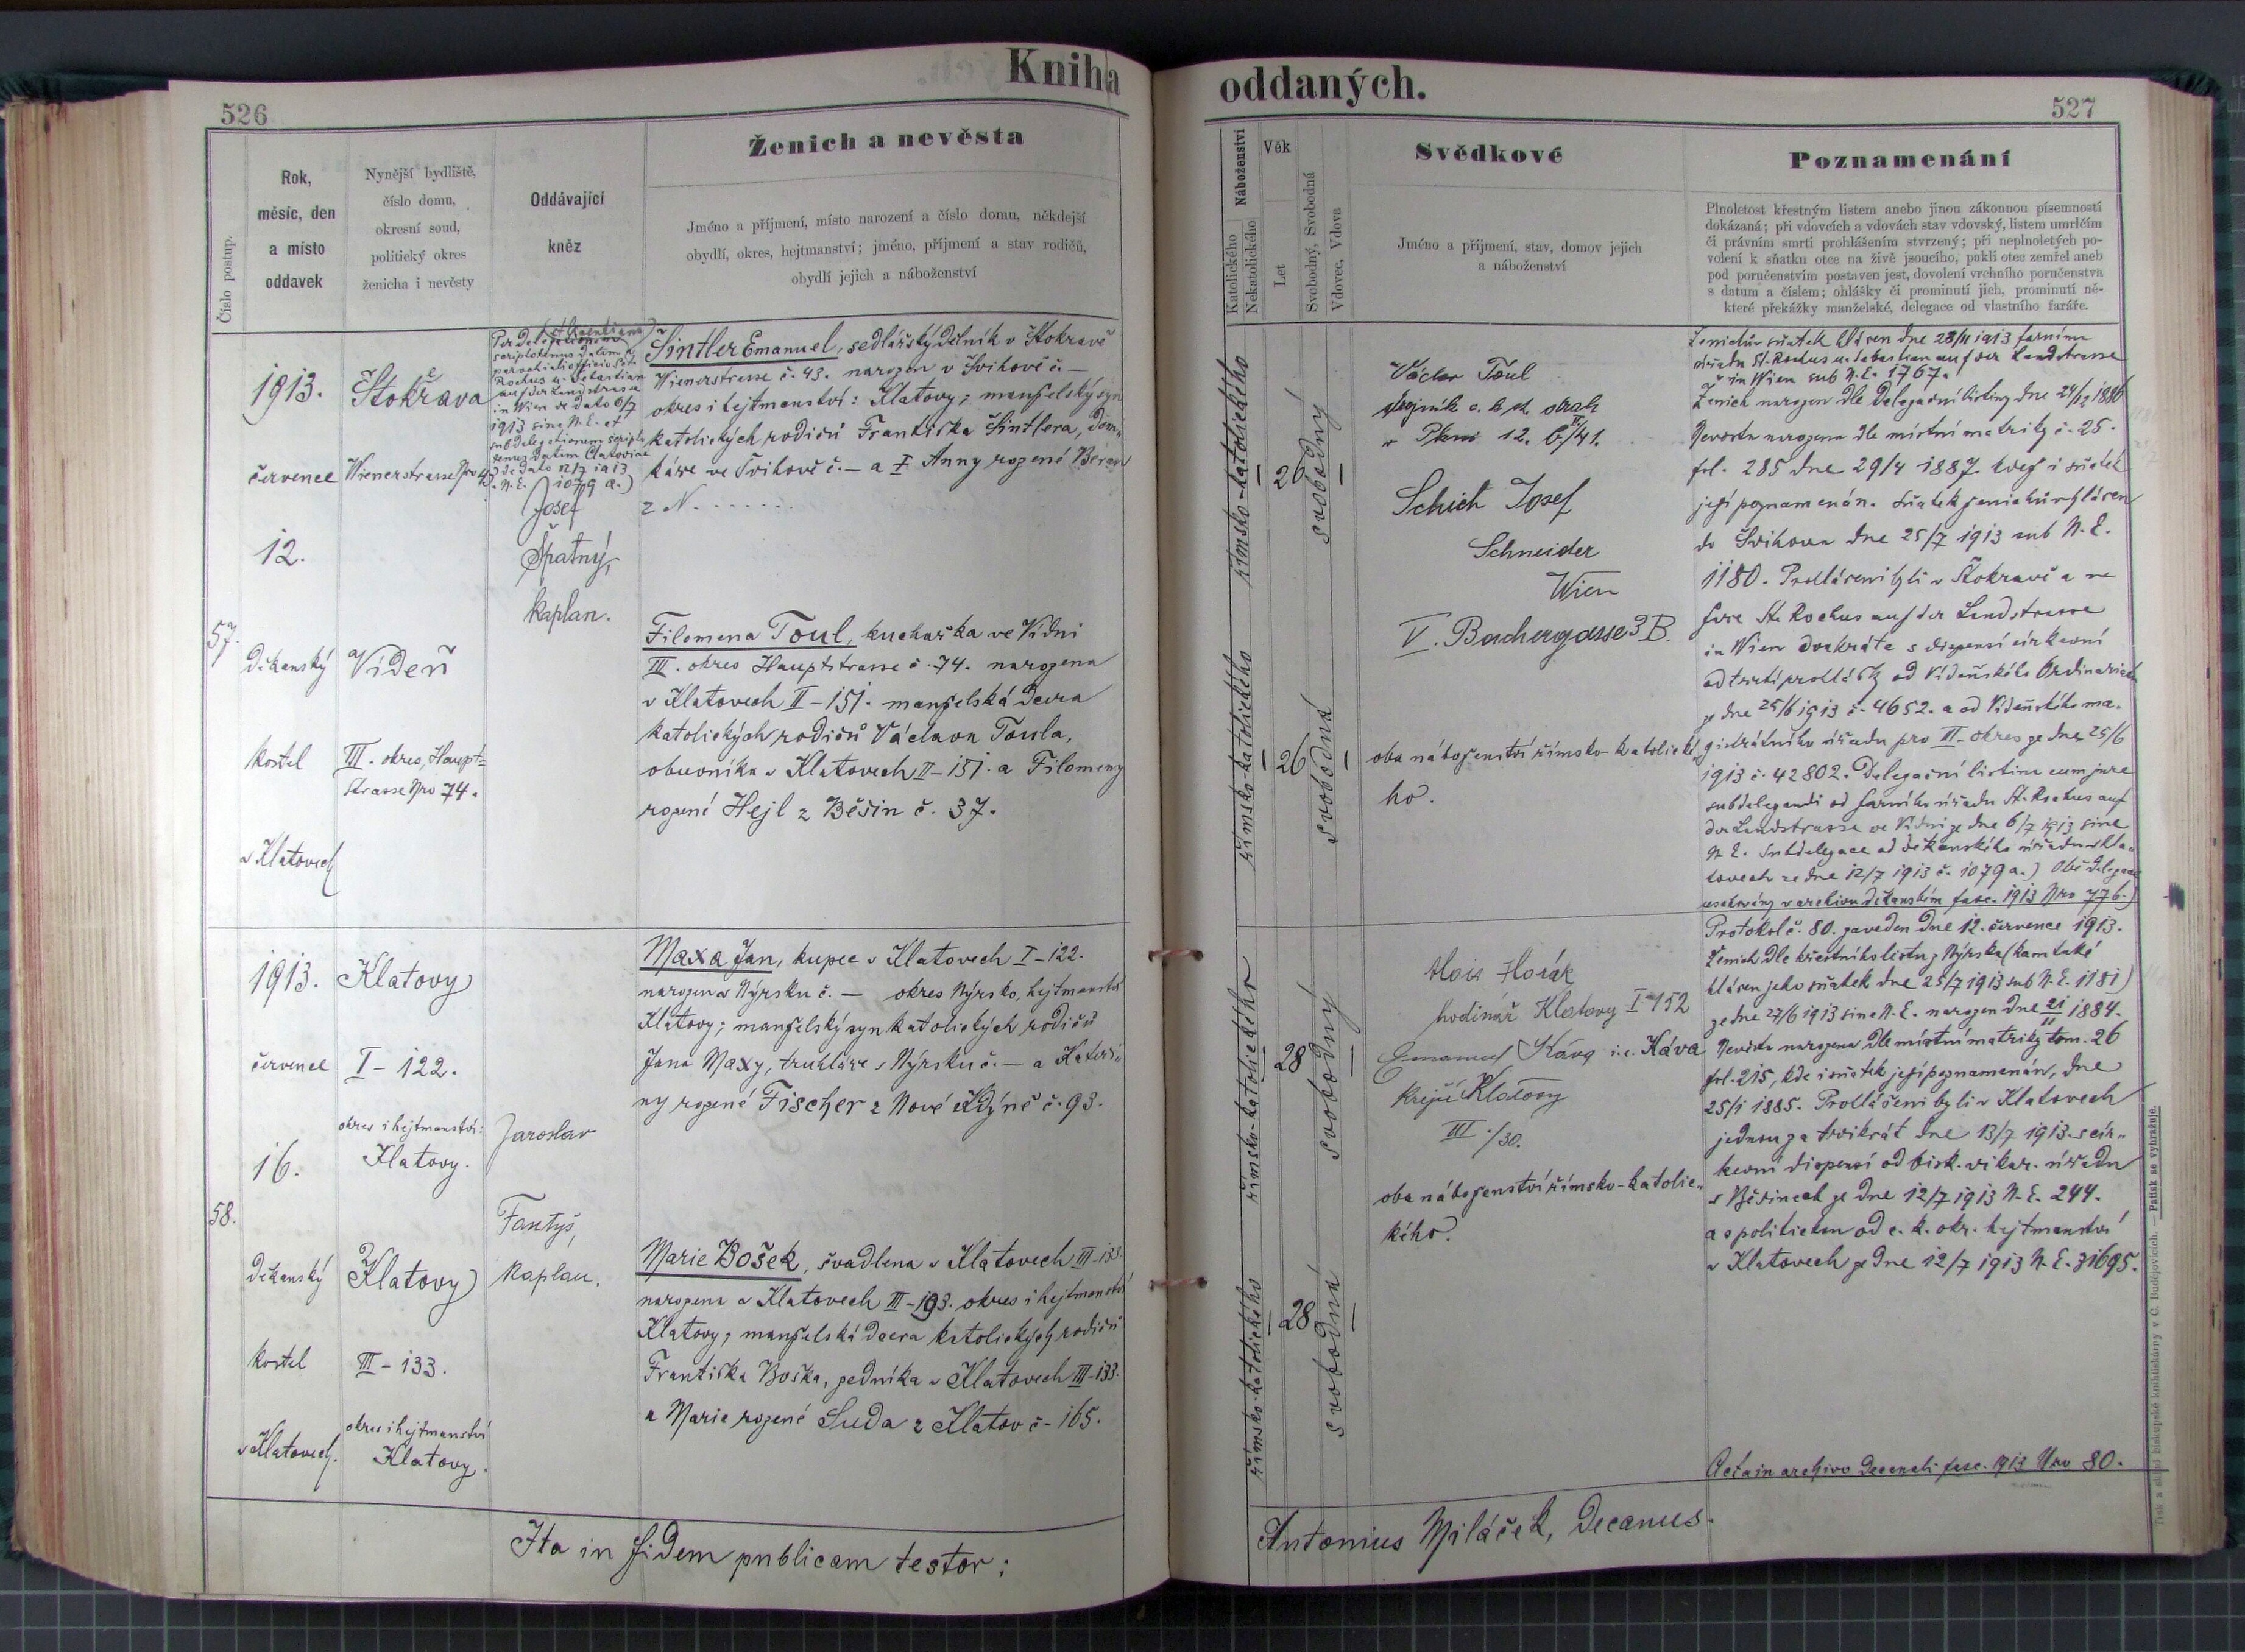 Kniha oddaných.
526
527
Číslo postup.
Rok,
měsíc, den
a místo
oddavek
Nynější bydliště,
číslo domu,
okresní soud,
politický okres
ženicha i nevěsty
Oddávající
kněz
Ženich a nevěsta
Jméno a příjmení, místo narození a číslo domu, někdejší
obydlí, okres, hejtmanství; jméno, příjmení a stav rodičů,
obydlí jejich a náboženství
Náboženství
Katolického
Nekatolického
Věk
Let
Svobodný, Svobodná
Vdovec, Vdova
Svědkové
Jméno a příjmení, stav, domov jejich
a náboženství
Poznamenání
Plnoletost křestným listem anebo jinou zákonnou písemností
dokázaná; při vdovcích a vdovách stav vdovský, listem umrlčím
či právním smrti prohlášením stvrzený; při neplnoletých po-
volení k sňatku otce na živě jsoucího, pakli otec zemřel aneb
pod poručenstvím postaven jest, dovolení vrchního poručenstva
s datum a číslem; ohlášky či prominutí jich, prominutí ně-
které překážky manželské, delegace od vlastního faráře.
57.
1913.
července
12.
děkanský
kostel
v Klatovech
Štokrava
Wienerstrasse Nro 43
Vídeň
III. okres, Haupt=
strasse Nro 74.
parochiali officio Sct.
Rochus u. Sebastian
auf der Landstrasse
in Wien de dato 6/7
1913 sine N. E. et
N. E. 1079 a.)
Josef
Špatný,
kaplan.
Šintler Emanuel, sedlářský dělník v Štokravě
Wienerstrasse č. 43. narozen v Švihově č. —
okres i hejtmanství: Klatovy; manželský syn
katolických rodičů Františka Šintlera, dom„
káře ve Švihově č. — a † Anny rozené Beran
z N. . . . . . .
Filomena Toul, kuchařka ve Vídni
III. okres Hauptstrasse č. 74. narozena
v Klatovech II – 151. manželská dcera
katolických rodičů Václava Toula,
obuvníka v Klatovech II – 151. a Filomeny
rozené Hejl z Běšin č. 37.
římsko-katolického
římsko-katolického
26
26
svobodný
svobodná
Václav Toul
Schich Josef
Schneider
Wien
V. Bachergasse 3 B.
oba náboženství římsko-katolické„
ho.
Ženichův sňatek hlášen dne 28/11 1913 farnímu
úřadu St. Rochus u. Sebastian auf der Landstrasse
in Wien sub N. E. 1767.
Ženich narozen dle delegační listiny dne 24/12 1886
Nevěsta narozena dle místní matriky č. 25.
fol. 285 dne 29/4 1887 kdež i sňatek
její poznamenán. Sňatek ženichův hlášen
do Švihova dne 25/7 1913 sub N. E.
1180. Prohlášeni byli v Štokravě a ve
faře St. Rochus auf der Landstrasse
in Wien dvakráte s dispensí církevní
od třetí prohlášky od Vídeňského Ordinariátu
ze dne 25/6 1913 č. 4652. a od Vídeňského ma„
gistrátního úřadu pro III. okres ze dne 25/6
1913 č. 42802. Delegační listina cum jure
subdelegandi od farního úřadu St. Rochus auf
der Landstrasse ve Vídni ze dne 6/7 1913 sine
N. E. Subdelegace od děkanského úřadu v Kla„
tovech ze dne 12/7 1913 č. 1079 a.) Obě delegace
v archivu děkanském fasc. 1913 Nro 77 b.)
58.
1913.
července
16.
děkanský
kostel
v Klatovech.
Klatovy
I – 122.
okres i hejtmanství:
Klatovy.
Klatovy
III – 133.
okres i hejtmanství
Klatovy.
Jaroslav
Fantyš,
kaplan.
Maxa Jan, kupec v Klatovech I – 122.
narozen v Nýrsku č. — okres Nýrsko, hejtmanství
Klatovy; manželský syn katolických rodičů
Jana Maxy, truhláře v Nýrsku č. — a Kateři„
ny rozené Fischer z Nové Kdýně č. 93.
Marie Bošek, švadlena v Klatovech III – 133.
narozena v Klatovech III – 193. okres i hejtmanství
Klatovy; manželská dcera katolických rodičů
Františka Boška, zedníka v Klatovech III – 133.
a Marie rozené Suda z Klatov č. 165.
římsko-katolického
římsko-katolického
28
28
svobodný
svobodná
Alois Horák
hodinář Klatovy I – 152
Emanuel Káva i. e. Káva
krejčí Klatovy
III./30.
oba náboženství římsko-katolic„
kého.
Protokol č. 80. zaveden dne 12. července 1913.
Ženich dle křestního listu z Nýrska (kam také
hlášen jeho sňatek dne 25/7 1913 sub N. E. 1181)
ze dne 27/6 1913 sine N. E. narozen dne 21/11 1884.
Nevěsta narozena dle místní matriky tom. 26
fol. 215, kde i sňatek její poznamenán, dne
25/1 1885. Prohlášeni byli v Klatovech
jednou za třikrát dne 13/7 1913. s cír„
kevní dispensí od bisk. vikar. úřadu
v Běšinech ze dne 12/7 1913 N. E. 244.
a s politickou od c. k. okr. hejtmanství
v Klatovech ze dne 12/7 1913 N. E. 31695.
Acta in archivo decanali fasc. 1913 Nro 80.
Ita in fidem publicam testor:
Antonius Miláček, Decanus.
Tisk a sklad biskupské knihtiskárny v Č. Budějovicích. — Patisk se vyhražuje.